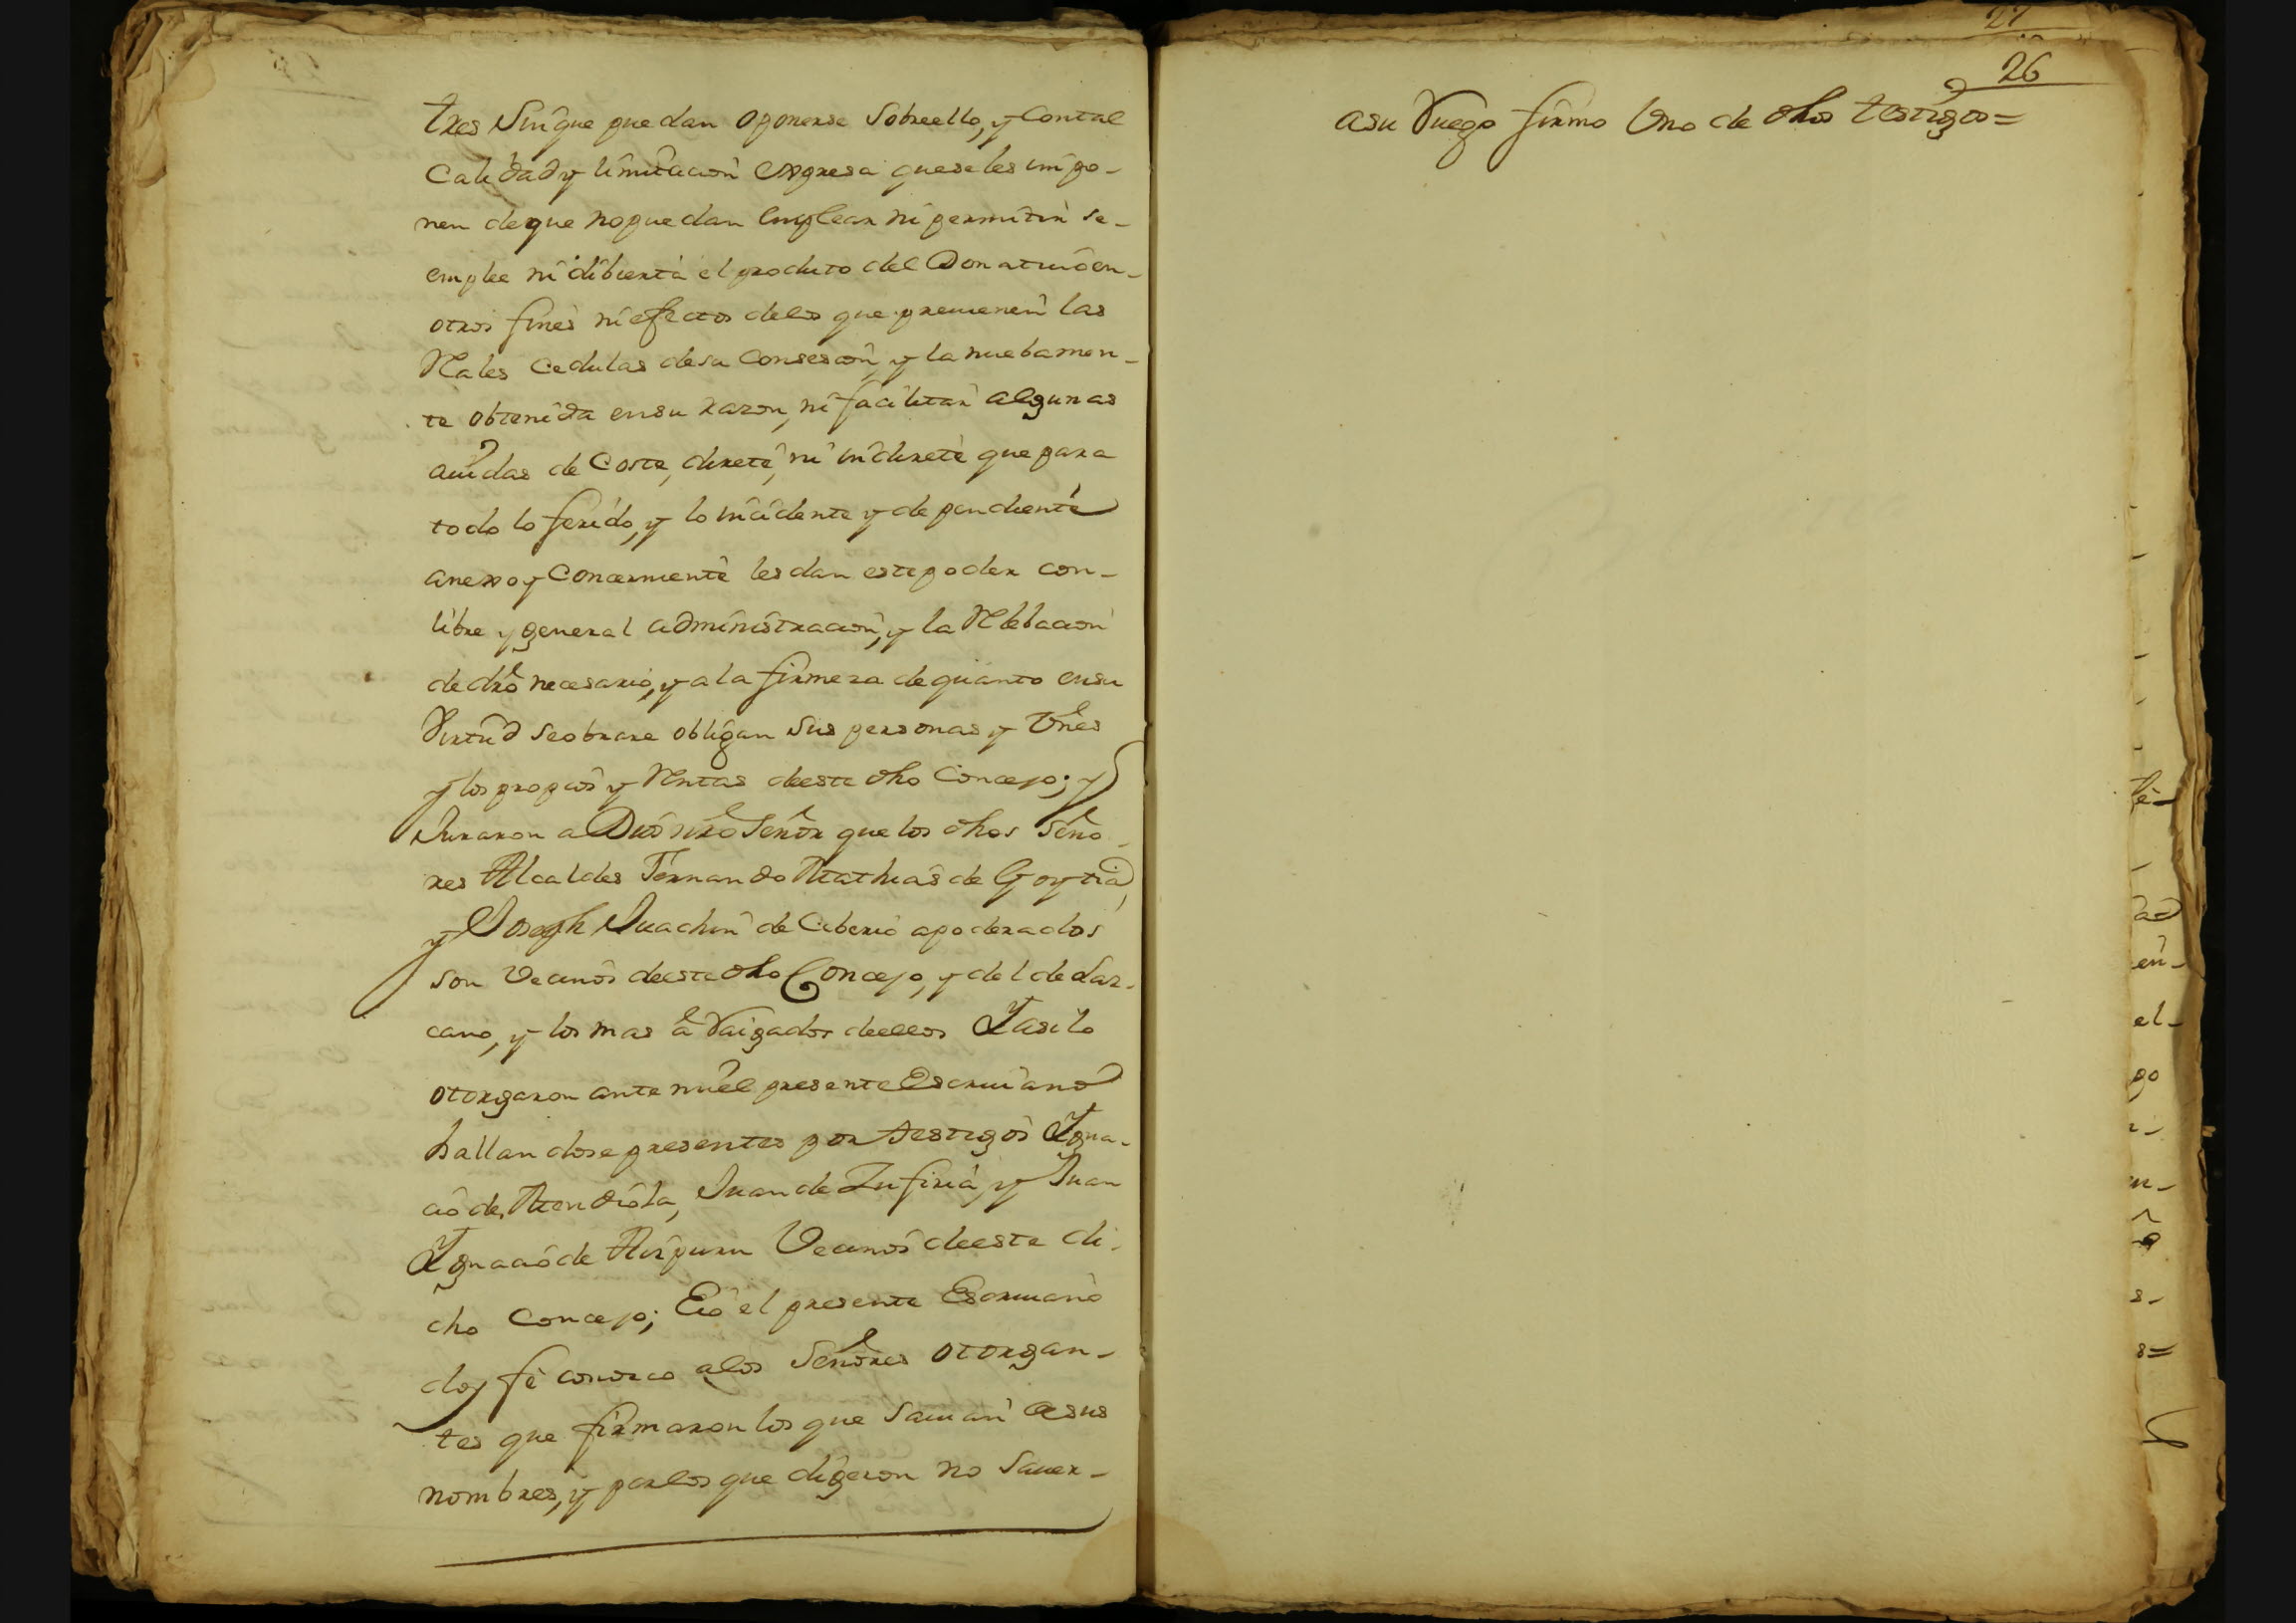 tres sin que puedan oponerse sobreello, y contal
calidad y limitacion expresa quese les impo-
nen deque nopuedan emplear ni permitir se-
emplee ni dibierta el produto del Donativo en-
otros fines ni efectos delos que previenen las
Rales Cedulas desu Consesion, y la nuebamen-
te obtenida ensu razon, ni facilitar algunas
aiudas de Costa, direte, ni indirete que para
todo lo ferido, y lo incidente y dependiente
anexo y Concerniente les dan este poder con-
libre y general administracion, y la Relebacion
de dro necesario, y a la firmeza de quanto ensu
Virtud seobrare obligan sus personas y Vnes
y los propios y Rentas deeste dho Concejo; y
Juraron a Dios nro Señor que los dhos Seño-
res Alcaldes Fernando Mathias de Goytia,
y Joseph Juachin de Ciberio apoderados
son Vecinos deeste dho Concejo, y del de Laz-
cano, y los mas aRaigados deellos Y asi lo
otorgaron ante mi el presente Escriuano
hallandose presentes por testigos Igna-
cio de Mendiola, Juan de Zufiria, y Juan
Ignacio de Aispuru Vecinos deeste di-
cho Concejo; E io el presente Escriuano
doy fe conozco alos Señores otorgan-
tes que firmaron los que sauian a sus
nombres, y porlos que digeron no sauer-
27
26
asu Ruego firmo Vno de dhos testigos=